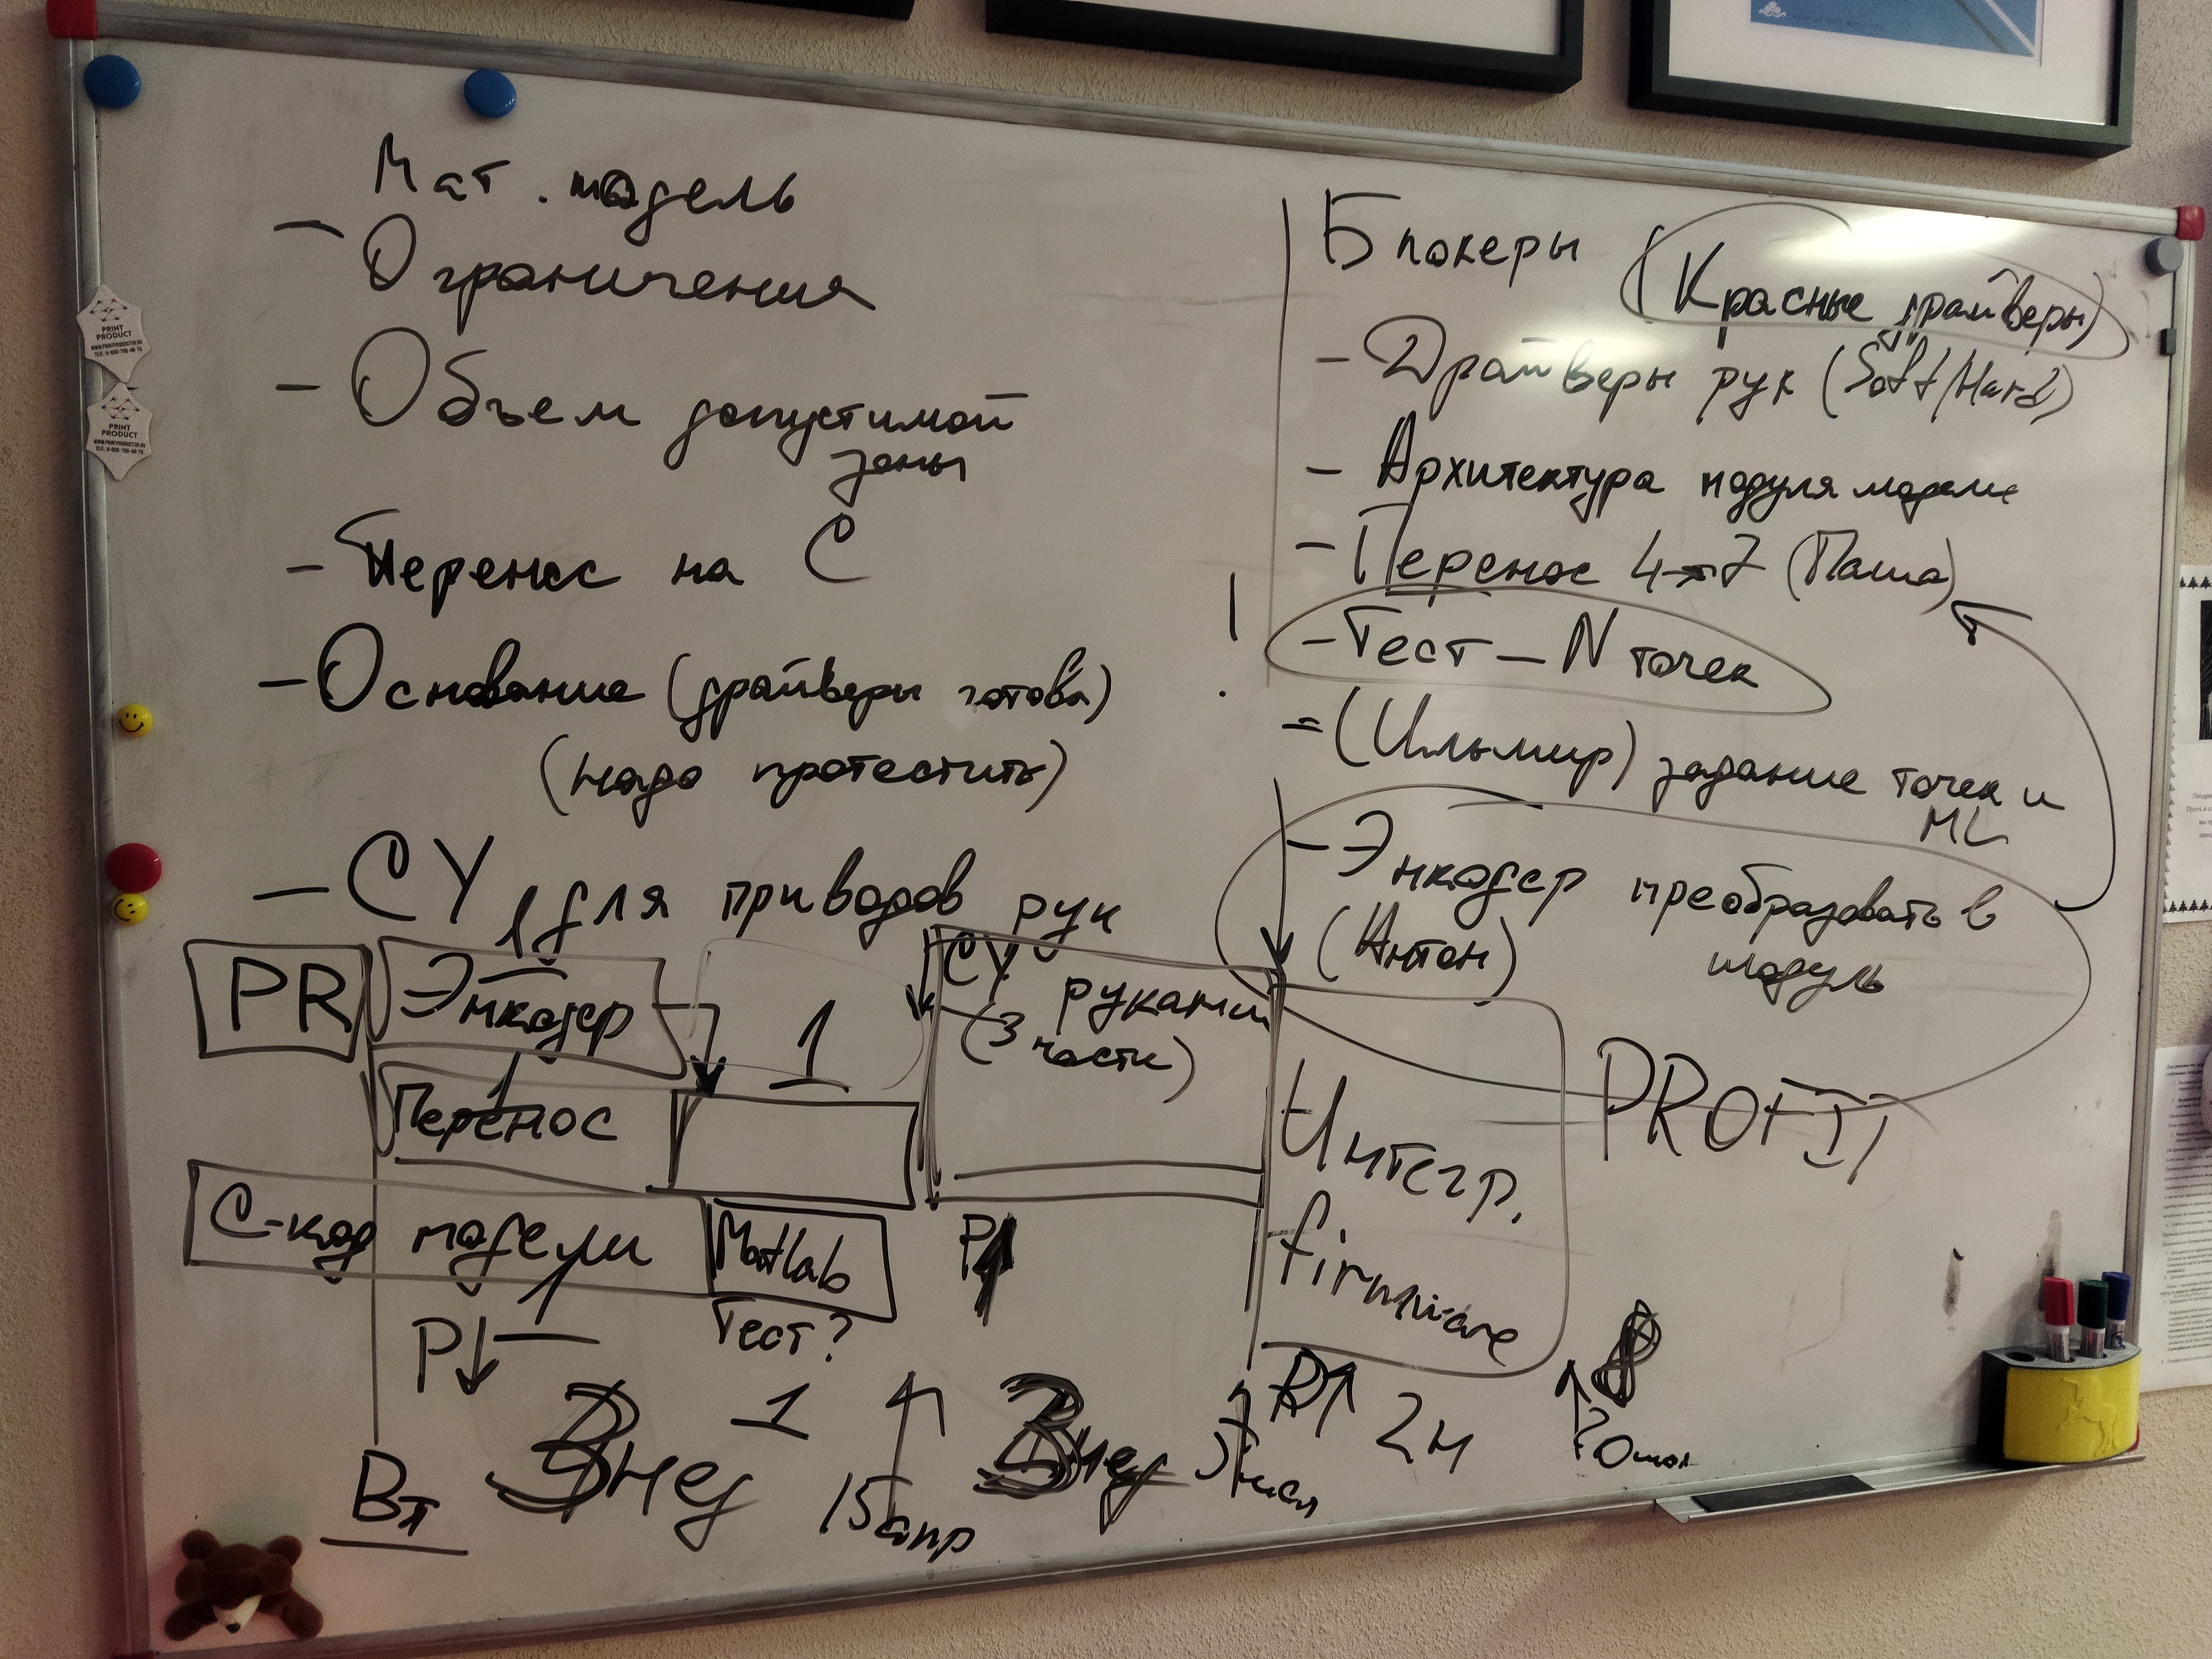 Мат. модель
- Ограничения
- Объем допустимой
зоны
- Перенос на С
- Основание (драйверы готова)
(надо протестить)
- СУ для приводов рук
Блокеры (Красные драйверы)
- Драйверы рук (Soft/Hard)
- Архитектура модуля модели
- Перенос 4→7 (Паша)
!
- Тест - N точек
= (Ильмир) задание точек и
ML
- Энкодер преобразовать в
(Антон) модуль
PR
Энкодер
1
1
СУ руками
(3 части)
Перенос
1
С-код модели
1
Matlab
Тест?
Интегр.
firmware
PROFIT
P↓
P↑
P↑
2н
Вт
3 нед
1
15 апр
3 нед
PRINT
PRODUCT
PRINT
PRODUCT